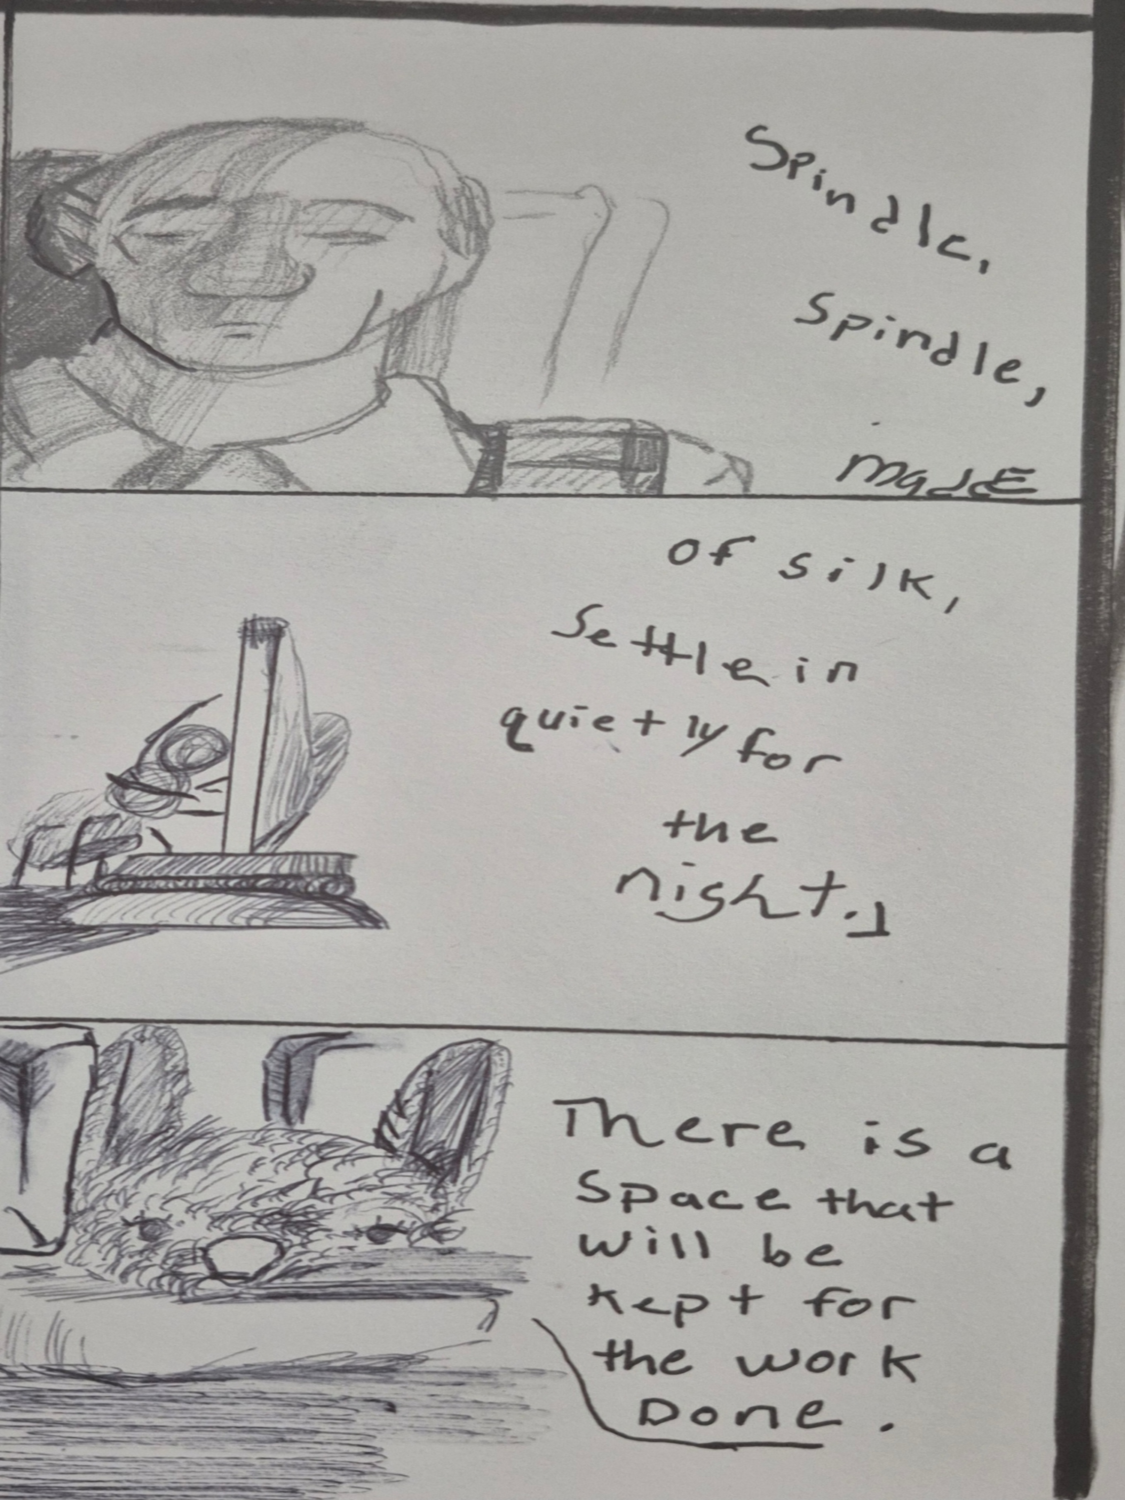 Spindle,
Spindle,
made
of silk,
Settle in
quietly for
the
night.
There is a
space that
will be
kept for
the work
Done.